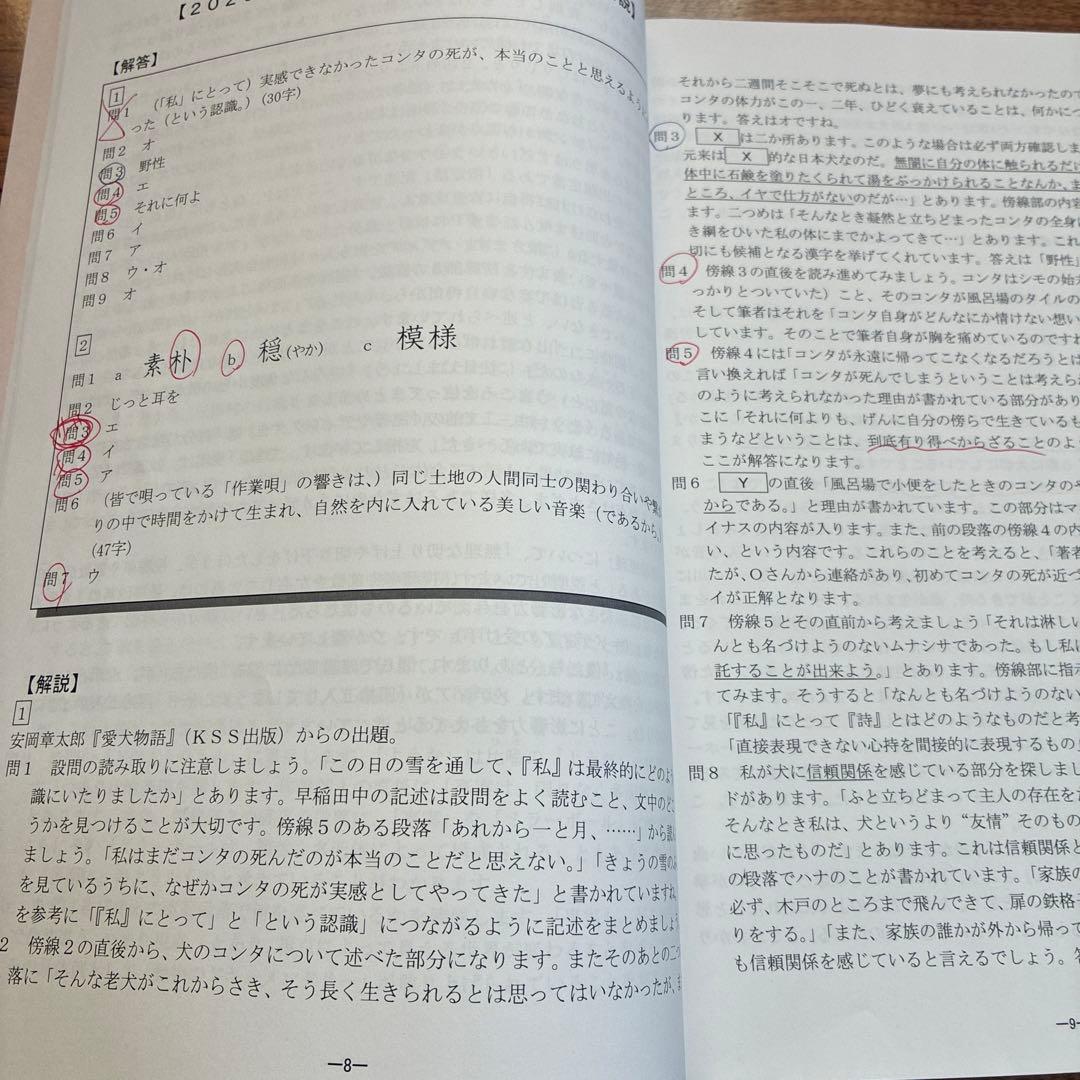 【202
説】
【解答】
1
問1 (「私」にとって)実感できなかったコンタの死が、本当のことと思えるよう
った(という認識。)(30字)
問2 オ
問3 野性
問4 エ
問5 それに何よ
問6 イ
問7 ア
問8 ウ・オ
問9 オ
2
問1 a 素朴 b 穏(やか) c 模様
問2 じっと耳を
問3 エ
問4 イ
問5 ア
問6 (皆で唄っている「作業唄」の響きは、)同じ土地の人間同士の関わり合いや繋
りの中で時間をかけて生まれ、自然を内に入れている美しい音楽(であるから。
(47字)
問7 ウ
【解説】
1
安岡章太郎『愛犬物語』(KSS出版)からの出題。
問1 設問の読み取りに注意しましょう。「この日の雪を通して、『私』は最終的にどのよ
識にいたりましたか」とあります。早稲田中の記述は設問をよく読むこと、文中のどこ
うかを見つけることが大切です。傍線5のある段落「あれから一と月、……」から読
ましょう。「私はまだコンタの死んだのが本当のことだと思えない。」「きょうの雪の
を見ているうちに、なぜかコンタの死が実感としてやってきた」と書かれていますね
を参考に「『私』にとって」と「という認識」につながるように記述をまとめましょう
2 傍線2の直後から、犬のコンタについて述べた部分になります。またそのあとの二つ
落に「そんな老犬がこれからさき、そう長く生きられるとは思ってはいなかったが、
―8―
それから二週間そこそこで死ぬとは、夢にも考えられなかったので
コンタの体力がこの一、二年、ひどく衰えていることは、何かにつ
ります。答えはオですね。
問3 X は二か所あります。このような場合は必ず両方確認しま
元来は X 的な日本犬なのだ。無闇に自分の体に触られるだけ
体中に石鹸を塗りたくられて湯をぶっかけられることなんか、ま
ところ、イヤで仕方がないのだが…」とあります。傍線部の内容
ます。二つめは「そんなとき凝然と立ちどまったコンタの全身に
き綱をひいた私の体にまでかよってきて…」とあります。これ
切にも候補となる漢字を挙げてくれています。答えは「野性」
問4 傍線3の直後を読み進めてみましょう。コンタはシモの始
っかりとついていた)こと、そのコンタが風呂場のタイルの
そして筆者はそれを「コンタ自身がどんなにか情けない想い
しています。そのことで筆者自身が胸を痛めているのですね
問5 傍線4には「コンタが永遠に帰ってこなくなるだろうとは
言い換えれば「コンタが死んでしまうということは考えら
のように考えられなかった理由が書かれている部分があり
こに「それに何よりも、げんに自分の傍らで生きているも
まうなどということは、到底有り得べからざることのよ
ここが解答になります。
問6 Y の直後「風呂場で小便をしたときのコンタのや
からである。」と理由が書かれています。この部分はマ
イナスの内容が入ります。また、前の段落の傍線4の内
い、という内容です。これらのことを考えると、「著者
たが、Oさんから連絡があり、初めてコンタの死が近づ
イが正解となります。
問7 傍線5とその直前から考えましょう「それは淋しい
んとも名づけようのないムナシサであった。もし私に
託することが出来よう。」とあります。傍線部に指示
てみます。そうすると「なんとも名づけようのない
「『私』にとって『詩』とはどのようなものだと考
「直接表現できない心持を間接的に表現するもの」
問8 私が犬に信頼関係を感じている部分を探しまし
ドがあります。「ふと立ちどまって主人の存在をた
そんなとき私は、犬というより“友情”そのもの
に思ったものだ」とあります。これは信頼関係と
の段落でハナのことが書かれています。「家族の
必ず、木戸のところまで飛んできて、扉の鉄格子
りをする。」「また、家族の誰かが外から帰って
も信頼関係を感じていると言えるでしょう。答
―9―